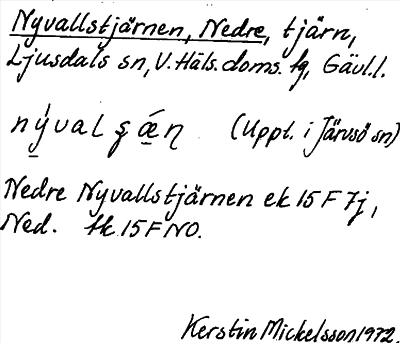 Nyvallstjärnen, Nedre, tjärn,
Ljusdals sn, V. Häls. doms. tg, Gävl.l.
(Uppt. i Järvsö sn)
Nedre Nyvallstjärnen ek 15 F 7j,
Ned. tk 15 F NO.
Kerstin Mickelsson 1972.